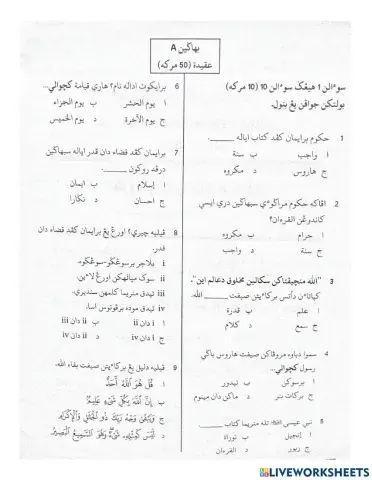 بهاڬين A
عقيدة (50 مركه)
سوءالن 1 هيڠݢ سوءالن 10 (10 مركه)
بولتكن جواڤن يڠ بتول.
1 حكوم برايمان كڤد كتاب اياله ______.
ا واجب ب سنة
ج هاروس د مكروه
2 اڤاكه حكوم مراڬوءي سباڬين دري ايسي
كاندوڠن القرءان؟
ا حرام ب مكروه
ج سنة د واجب
3 "الله منچيڤتاكن سكالين مخلوق دعالم اين".
كياتاءن دأتس بركاءيتن صيفت ______ الله.
ا علم ب قدرة
ج سمع د كلام
4 سموا دباوه مروڤاكن صيفت هاروس باڬي
رسول كچوالي...
ا برسوكن ب تيدور
ج بركات بنر د ماكن دان مينوم
5 نبي عيسى تله منريما كتاب ______
ا إنجيل ب توراة
ج زبور د القرءان
6 برايكوت اداله نام٢ هاري قيامة كچوالي...
ا يوم الحشر ب يوم الجزاء
ج يوم الآخرة د يوم الخميس
7 برايمان كڤد قضاء دان قدر اياله سباهاڬين
درڤد روكون ______.
ا إسلام ب ايمان
ج احسان د نڬارا
8 ڤيليه چيري٢ اورڠ يڠ برايمان كڤد قضاء دان
قدر.
i بلاجر برسوڠݢوه-سوڠݢوه.
ii سوك ميالهكن اورڠ لاءين.
iii تيدق منريما كلمهن سنديري.
iv تيدق موده برڤوتوس اسا.
ا i دان ii ب ii دان iii
ج i دان iv د ii دان iv
9 ڤيليه دليل يڠ بركاءيتن صيفت بقاء الله.
ا قُلْ هُوَ اللَّهُ أَحَدٌ
ب إِنَّ اللَّهَ بِكُلِّ شَيْءٍ عَلِيمٌ
ج وَيَبْقَىٰ وَجْهُ رَبِّكَ ذُو الْجَلَٰلِ وَالْإِكْرَامِ
د لَيْسَ كَمِثْلِهِ شَيْءٌ وَهُوَ السَّمِيعُ الْبَصِيرُ
LIVEWORKSHEETS